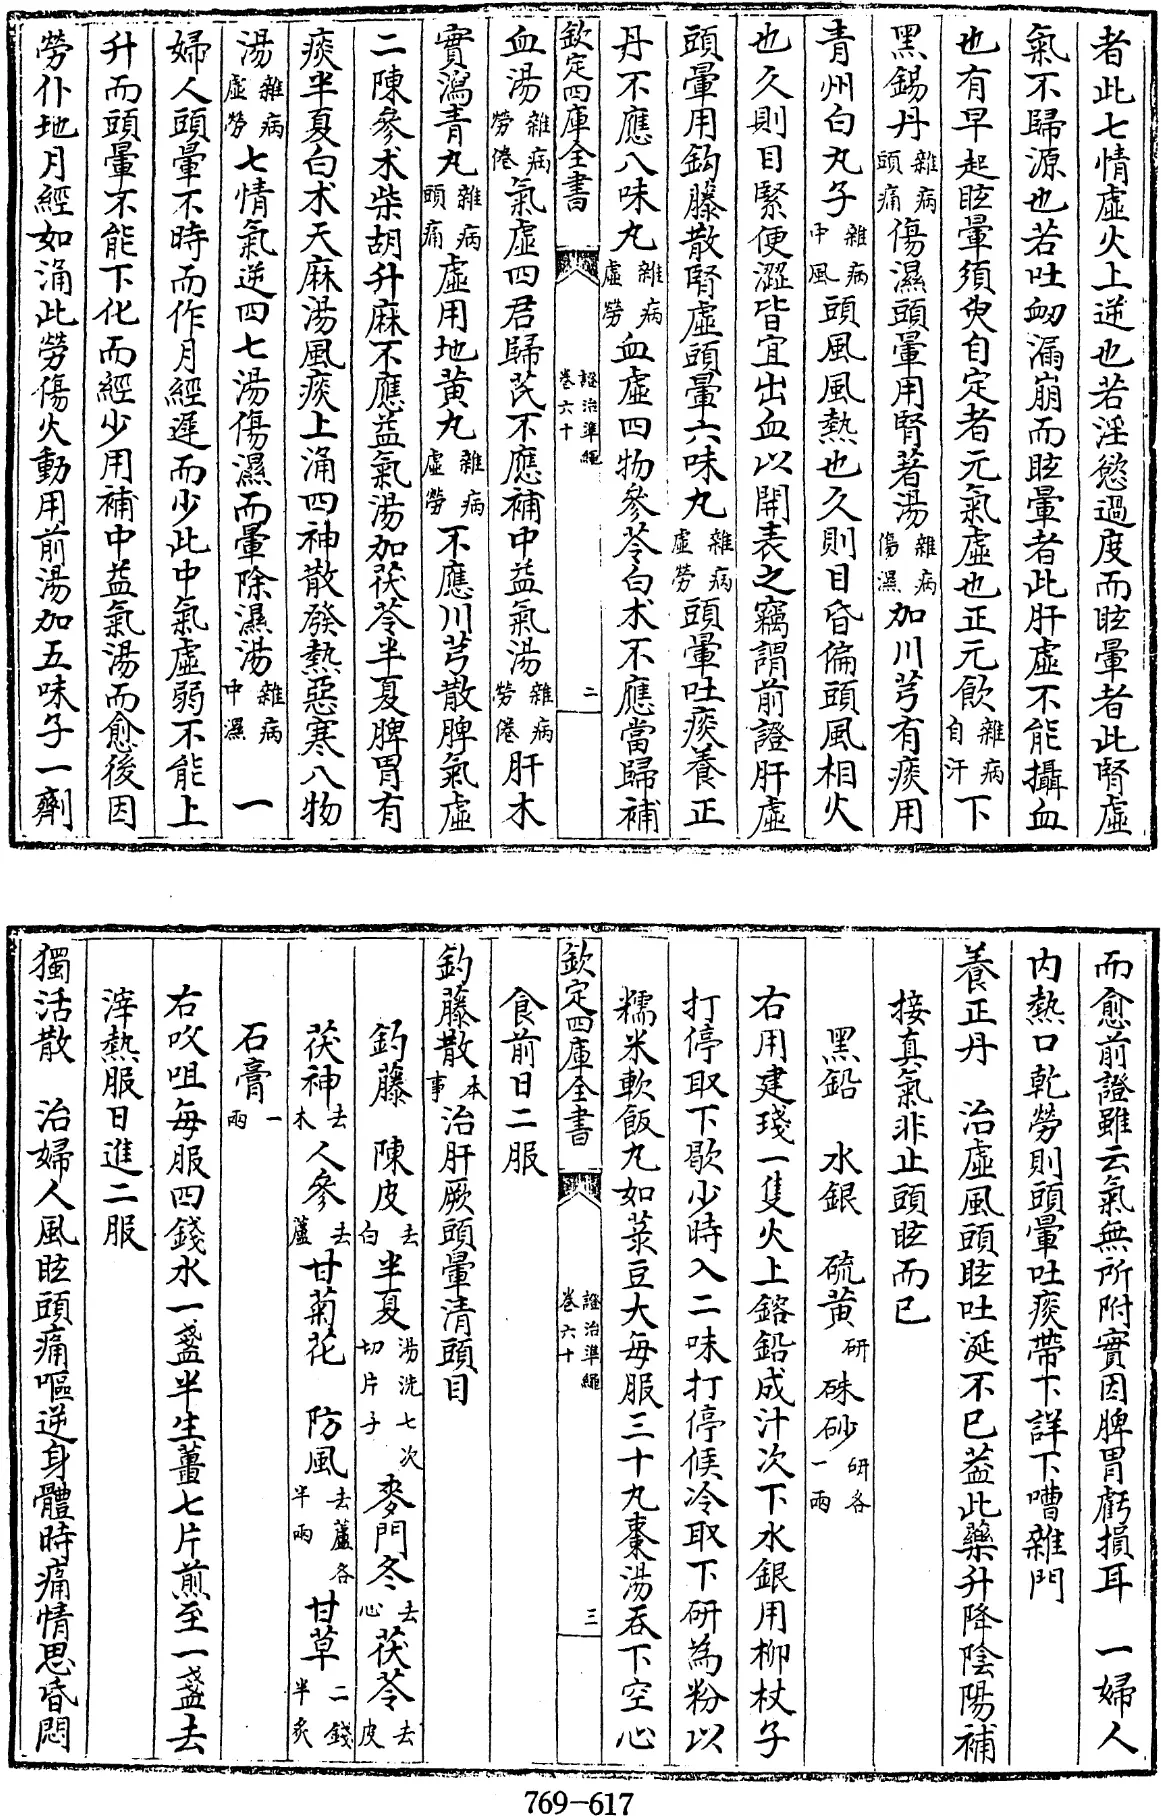 者此七情虛火上逆也若淫慾過度而眩暈者此腎虛
氣不歸源也若吐衂漏崩而眩暈者此肝虛不能攝血
也有早起眩暈須臾自定者元氣虛也正元飲雜病自汗下
黑錫丹雜病頭痛傷濕頭暈用腎著湯雜病傷濕加川芎有痰用
青州白丸子雜病中風頭風風熱也久則目昏偏頭風相火
也久則目緊便澀皆宜出血以開表之竊謂前證肝虛
頭暈用鈎藤散腎虛頭暈六味丸雜病虛勞頭暈吐痰養正
丹不應八味丸雜病虛勞血虛四物參苓白术不應當歸補
欽定四庫全書 證治準繩卷六十 二
血湯雜病勞倦氣虛四君歸芪不應補中益氣湯雜病勞倦肝木
實瀉青丸雜病頭痛虛用地黄丸雜病虛勞不應川芎散脾氣虛
二陳參术柴胡升麻不應益氣湯加茯苓半夏脾胃有
痰半夏白术天麻湯風痰上涌四神散發熱惡寒八物
湯雜病虛勞七情氣逆四七湯傷濕而暈除濕湯雜病中濕 一
婦人頭暈不時而作月經遲而少此中氣虛弱不能上
升而頭暈不能下化而經少用補中益氣湯而愈後因
勞仆地月經如涌此勞傷火動用前湯加五味子一劑
而愈前證雖云氣無所附實因脾胃虧損耳 一婦人
内熱口乾勞則頭暈吐痰帶下詳下嘈雜門
養正丹 治虛風頭眩吐涎不已葢此藥升降陰陽補
接真氣非止頭眩而已
黑鉛 水銀 硫黄研 硃砂研各一兩
右用建琖一隻火上鎔鉛成汁次下水銀用柳杖子
打停取下歇少時入二味打停候冷取下研為粉以
糯米軟飯丸如菉豆大每服三十丸棗湯吞下空心
欽定四庫全書 證治準繩卷六十 三
食前日二服
鈎藤散本事 治肝厥頭暈清頭目
鈎藤 陳皮去白 半夏湯洗七次切片子 麥門冬去心 茯苓去皮
茯神去木 人參去蘆 甘菊花 防風去蘆各半兩 甘草二錢半炙
石膏一兩
右㕮咀每服四錢水一盞半生薑七片煎至一盞去
滓熱服日進二服
獨活散 治婦人風眩頭痛嘔逆身體時痛情思昏悶
769-617